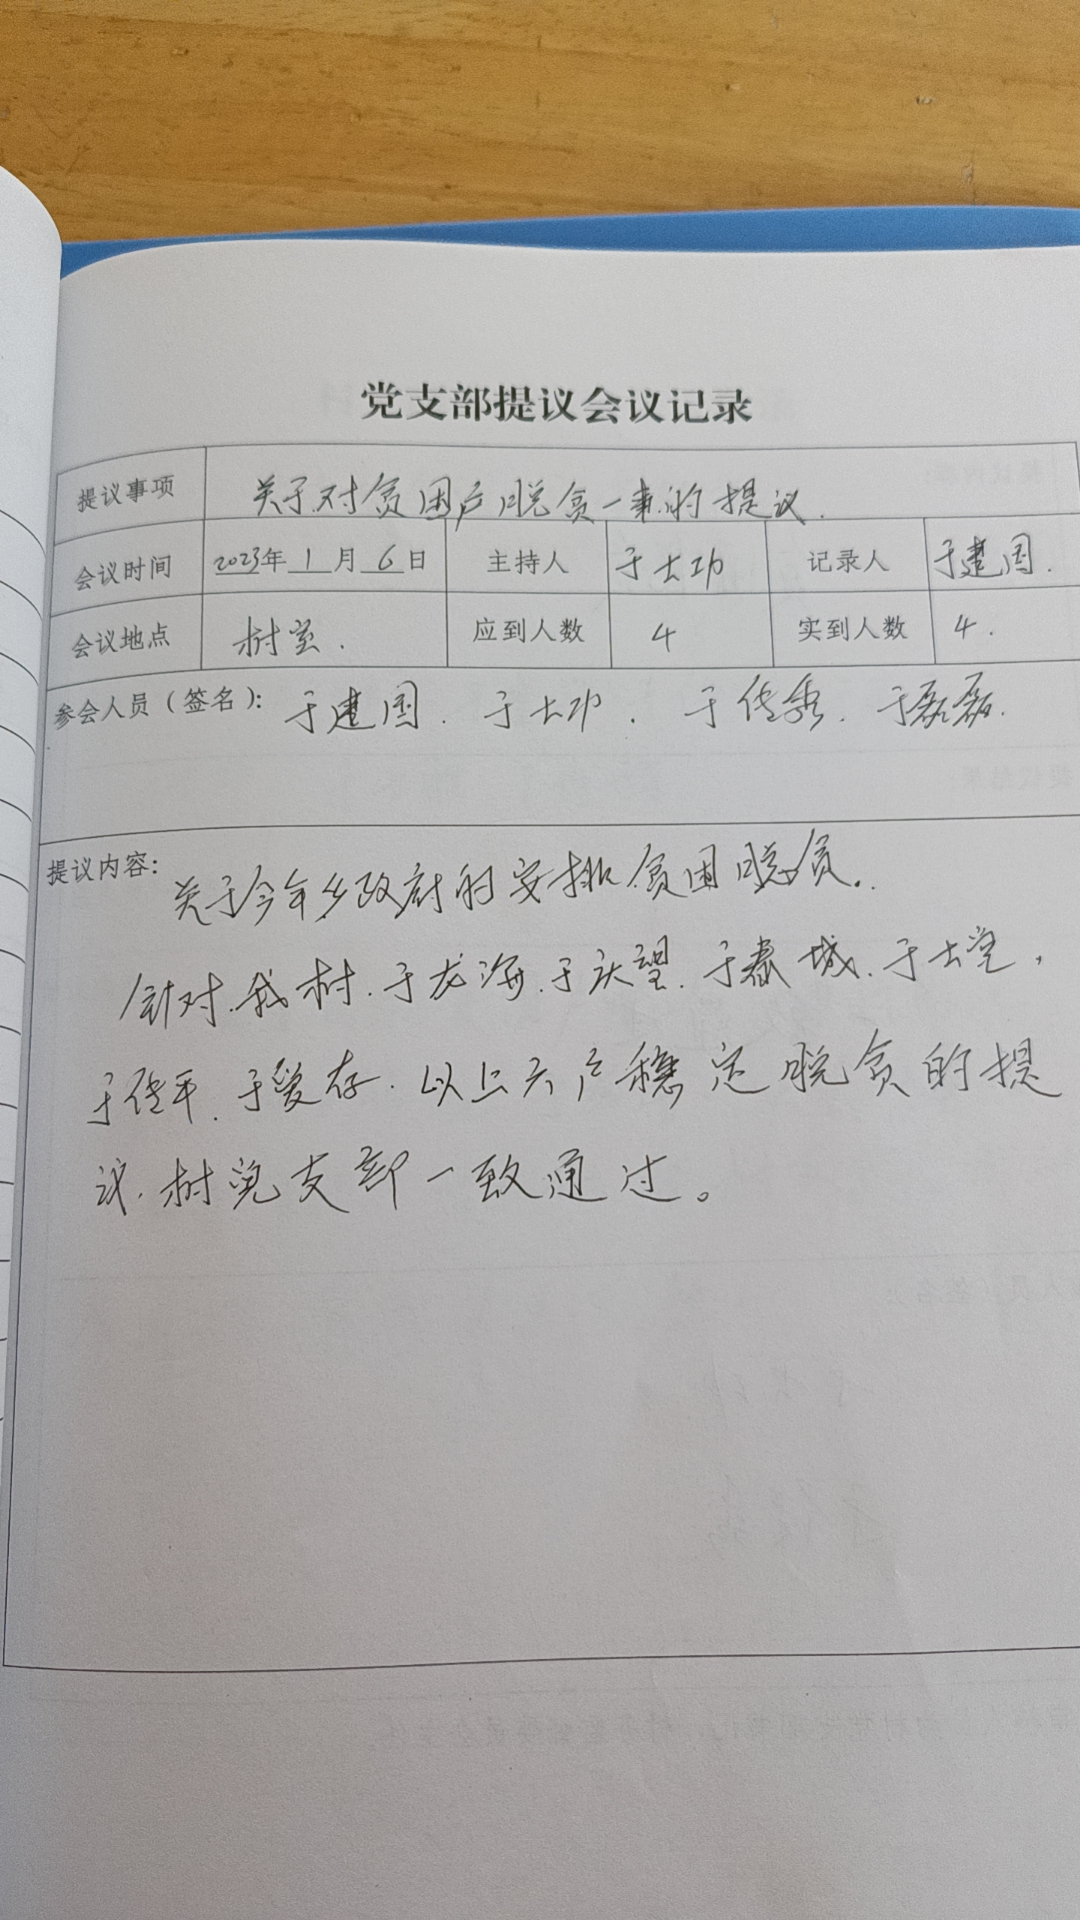 党支部提议会议记录
提议事项 关于对贫困户脱贫一事的提议.
会议时间 2023年1月6日 主持人 于士功 记录人 于建国.
会议地点 村室. 应到人数 4 实到人数 4.
参会人员（签名）： 于建国. 于士功. 于传秀. 于磊磊.
提议内容： 关于今年乡政府的安排贫困脱贫..
针对.我村.于龙海.于庆望.于春城.于士堂,
于传平.于爱存.以上六户稳定脱贫的提
议.村党支部一致通过。